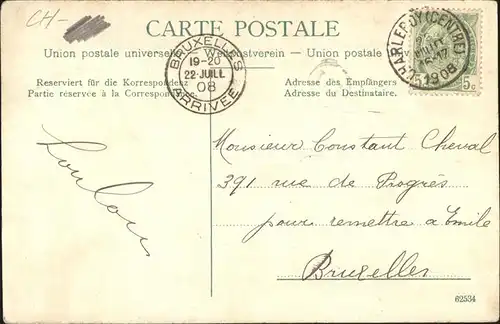 CH-
CARTE POSTALE
Union postale universelle — Weltpostverein — Union postale
Reserviert für die Korrespondenz
Partie réservée à la Correspondance.
Adresse des Empfängers
Adresse du Destinataire.
BRUXELLES
19-20
22 JUILL
08
ARRIVÉE
CHARLEROY (CENTRE)
1908
5c
Monsieur Constant Cheval
391 rue de Progrès
pour remettre à Emile
Bruxelles
Loulou
62534